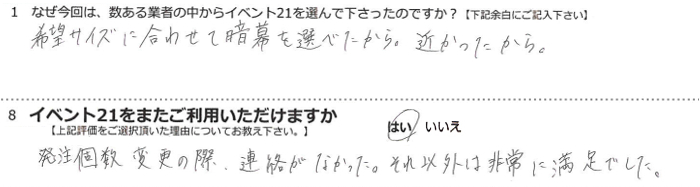 1 なぜ今回は、数ある業者の中からイベント21を選んで下さったのですか？【下記余白にご記入下さい】
希望サイズに合わせて暗幕を選べたから。近かったから。
8 イベント21をまたご利用いただけますか はい いいえ
【上記評価をご選択頂いた理由についてお教え下さい。】
発注個数変更の際、連絡がなかった。それ以外は非常に満足でした。